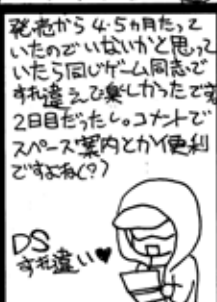 発売から4.5ヵ月たって
いたのでいないかと思って
いたら同じゲーム同志で
すれ違えて楽しかったです
2日目だったし。コメントで
スペース案内とか便利
ですよね(?)
DS
すれ違い♥